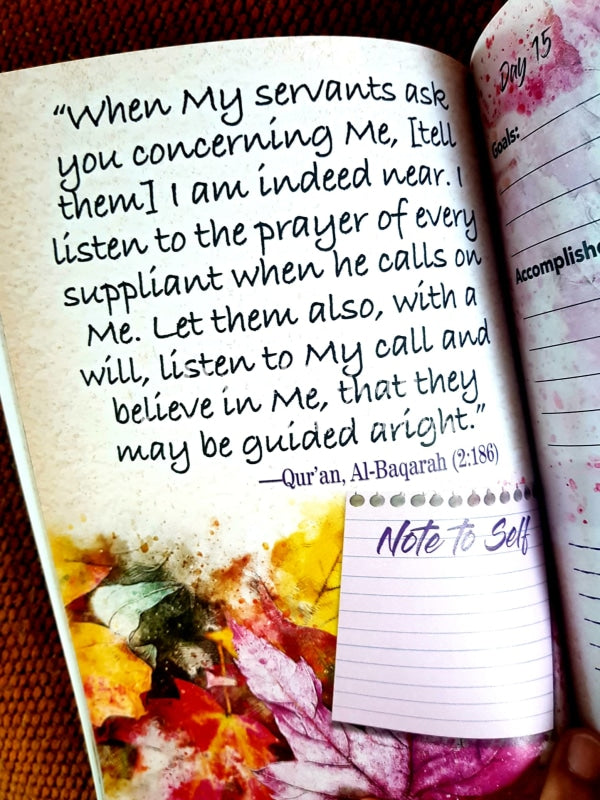 “When My servants ask
you concerning Me, [tell
them] I am indeed near. I
listen to the prayer of every
suppliant when he calls on
Me. Let them also, with a
will, listen to My call and
believe in Me, that they
may be guided aright.”
—Qur'an, Al-Baqarah (2:186)
Note to Self
Day 15
Goals: